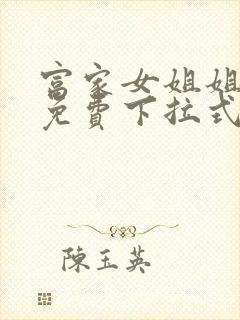 富家女姐姐
免費下拉式
陳玉英